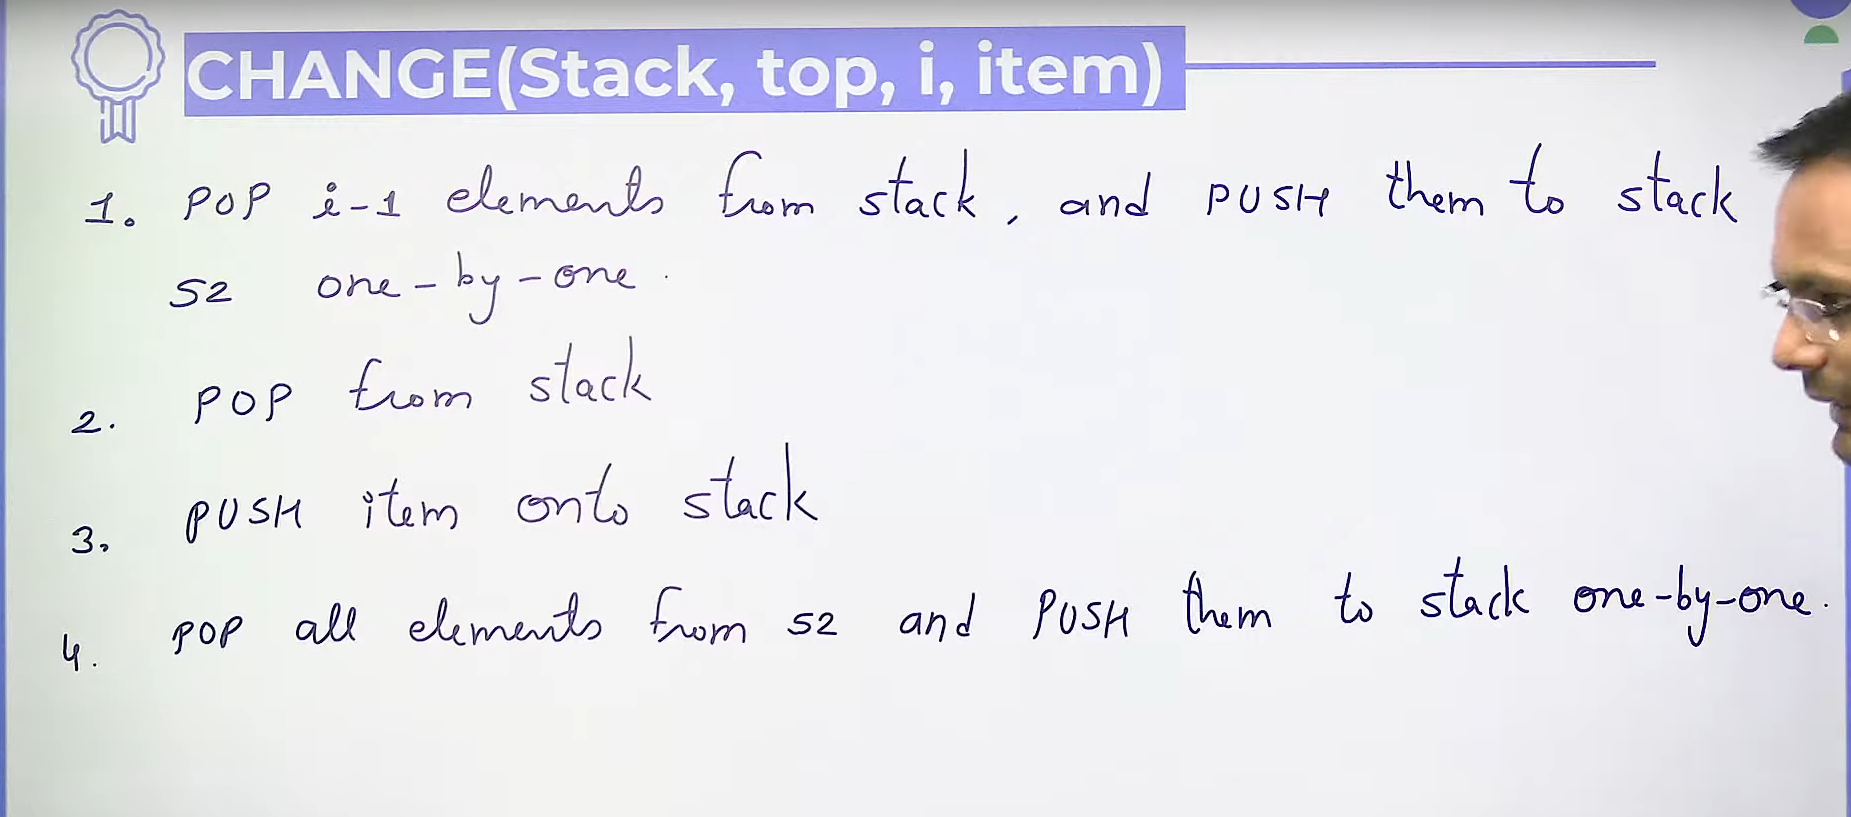 CHANGE(Stack, top, i, item)
1. POP i-1 elements from stack, and PUSH them to stack
S2 one-by-one.
2. POP from stack
3. PUSH item onto stack
4. POP all elements from S2 and PUSH them to stack one-by-one.